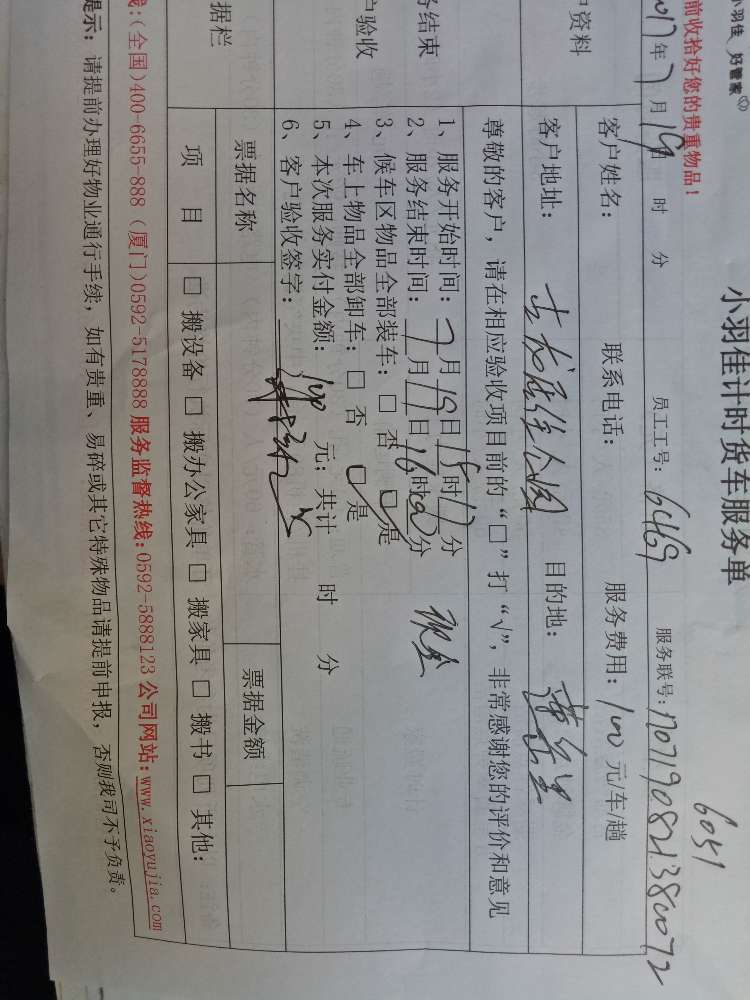 小羽佳 好管家
小羽佳计时货车服务单
6051
前收拾好您的贵重物品！
2017年7月19日 时 分 员工工号：6469 服务联号：
户资料
客户姓名： 联系电话： 服务费用：100元/车/趟
客户地址： 目的地：
尊敬的客户，请在相应验收项目前的“□”打“√”，非常感谢您的评价和意见
务结束
户验收
1、服务开始时间：7月19日15时17分
2、服务结束时间：7月19日16时00分
3、候车区物品全部装车：□否 □是
4、车上物品全部卸车：□否 □是
5、本次服务实付金额：100 元；共计 时 分
6、客户验收签字：
现金
据栏
票据名称 票据金额
项 目 □ 搬设备 □ 搬办公家具 □ 搬家具 □ 搬书 □ 其他：
线：(全国)400-6655-888 (厦门)0592-5178888 服务监督热线：0592-5888123 公司网站：www.xiaoyujia.com
提示：请提前办理好物业通行手续，如有贵重、易碎或其它特殊物品请提前申报，否则我司不予负责。